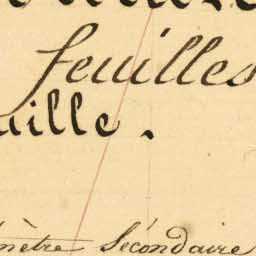 feuilles
aille.
mètre Sécondaire